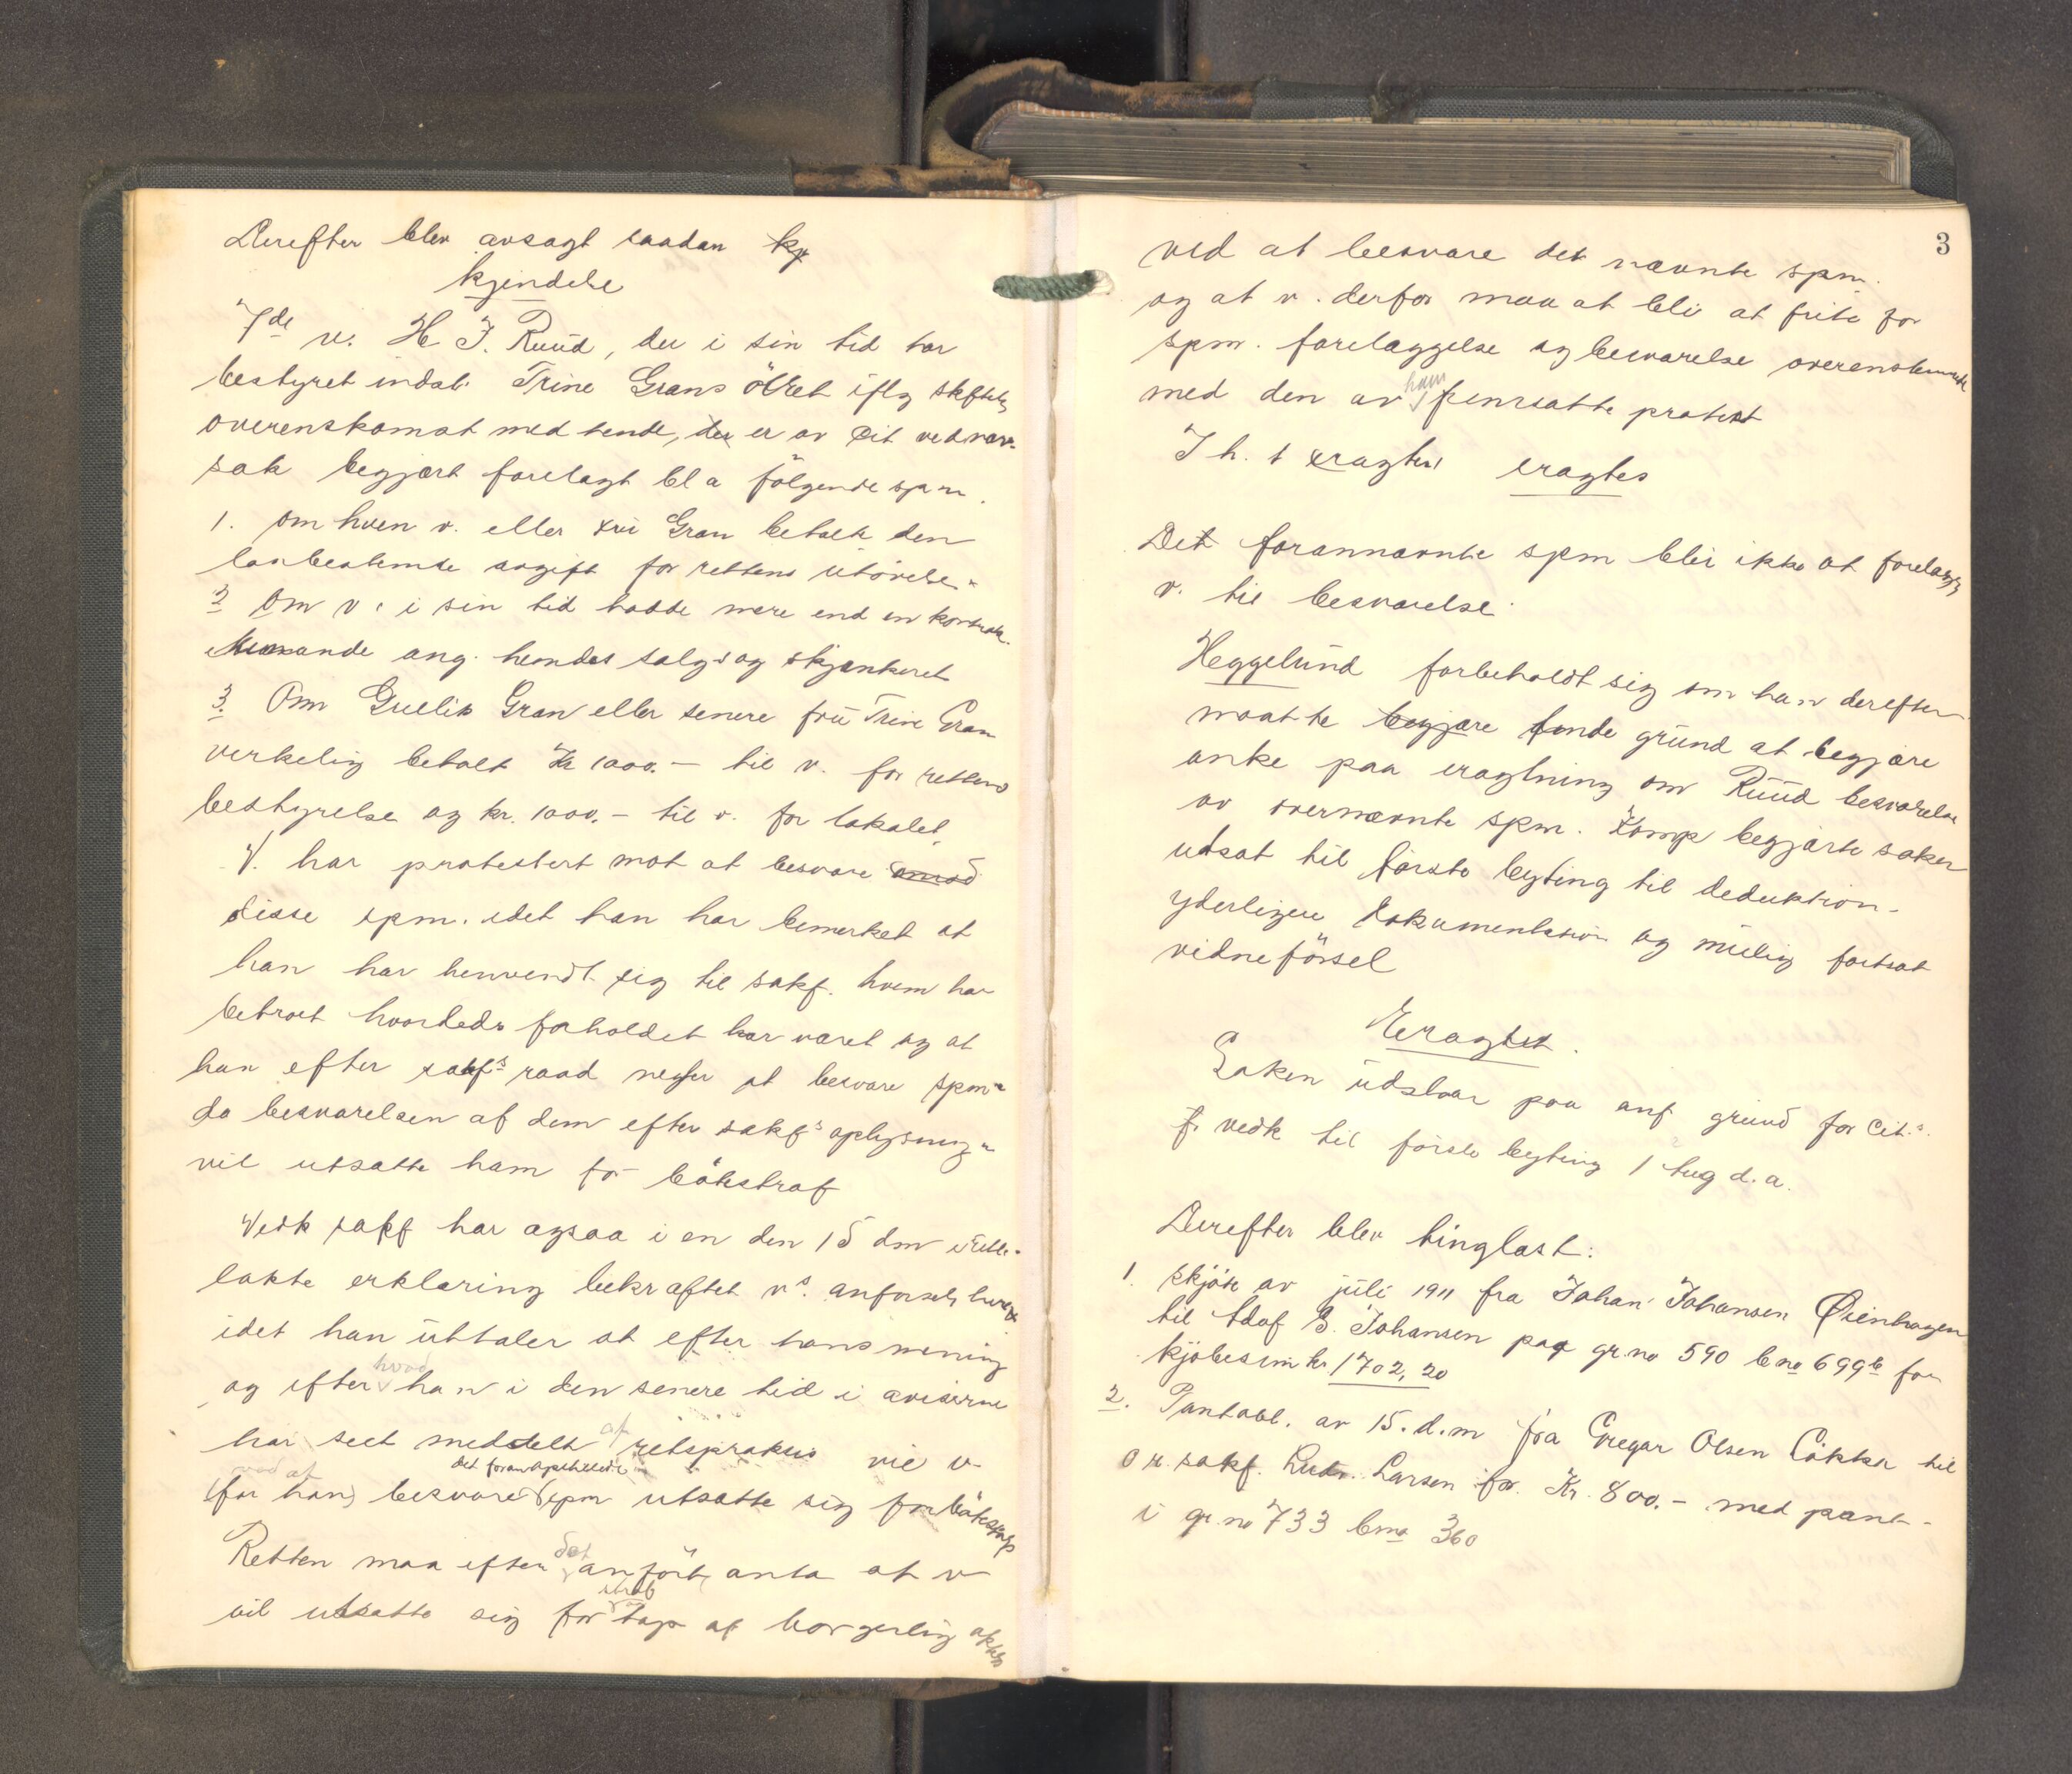 Derefter blev avsagt saadan
kjendelse
7de v. H. J. Ruud, der i sin tid har
bestyret indst. Trine Grans ölret iflg
overenskomst med hende, er av cit
sak begjært forelagt bl a følgende spm.
1. om hven v. eller fru Gran betalte den
lovbestemte avgift for rettens utövelse
2 Om v. i sin tid hadde mere end en
ang. hendes salgs og skjænkeret
3. Om Gullik Gran eller senere frü Trine Gran
verkelig betalt Kr 1000.- til v. for rettens
bestyrelse og kr. 1000.- til v. for lokalet
V. har protestert mot at besvare
disse spm. idet han har bemerket at
han har henvendt sig til sakf. hvem har
betroet hvorledes forholdet har været og at
han efter sakfs raad negter at besvare spm
da besvarelsen af dem efter sakfs oplysning
vil utsætte ham for bötestraf
Vedk sakf har ogsaa i en den 15 dm
lakte erklæring bekræftet vs.
idet han üttaler at efter hans mening
og efter hvad han i den senere tid i aviserne
har seet meddelt af retspraksis vil v
ved at besvare det spm utsætte sig for
Retten maa efter det anförte anta at v
vil utsætte sig for tap af borgerlig
3
ved at besvare det nævnte spm.
og at v. derfor maa at bli at frita for
spm. forelæggelse og besvarelse
med den av ham fremsatte protest
I h. t eragtes
Det forannævnte spm blir ikke at
v. til besvarelse
Heggelünd forbeholdt sig om han derefter
maatte begjære finde gründ at begjære
anke paa eragtning om Rüüd besvarelse
av overnævnte spm. Komp begjærte saken
udsat til første byting til deduktion
yderligere dokumentation og mülig fortsat
vidneförsel
Eragtet.
Saken üdstaar paa anf gründ for Cit.s
vedk til förste byting 1 Aug d. a.
Derefter blev tinglæst:
1. Skjöte av juli 1911 fra Johan Johansen Øienhagen
til Adof E. Johansen paa gr.no 590 bno 699b for
kjöbesum kr. 1702,20
2. Pantobl. av 15. d.m fra Gregar Olsen Cökka til
o r. sakf. Ludv. Larsen for Kr. 800.- med pant
i gr.no 733 bno 360